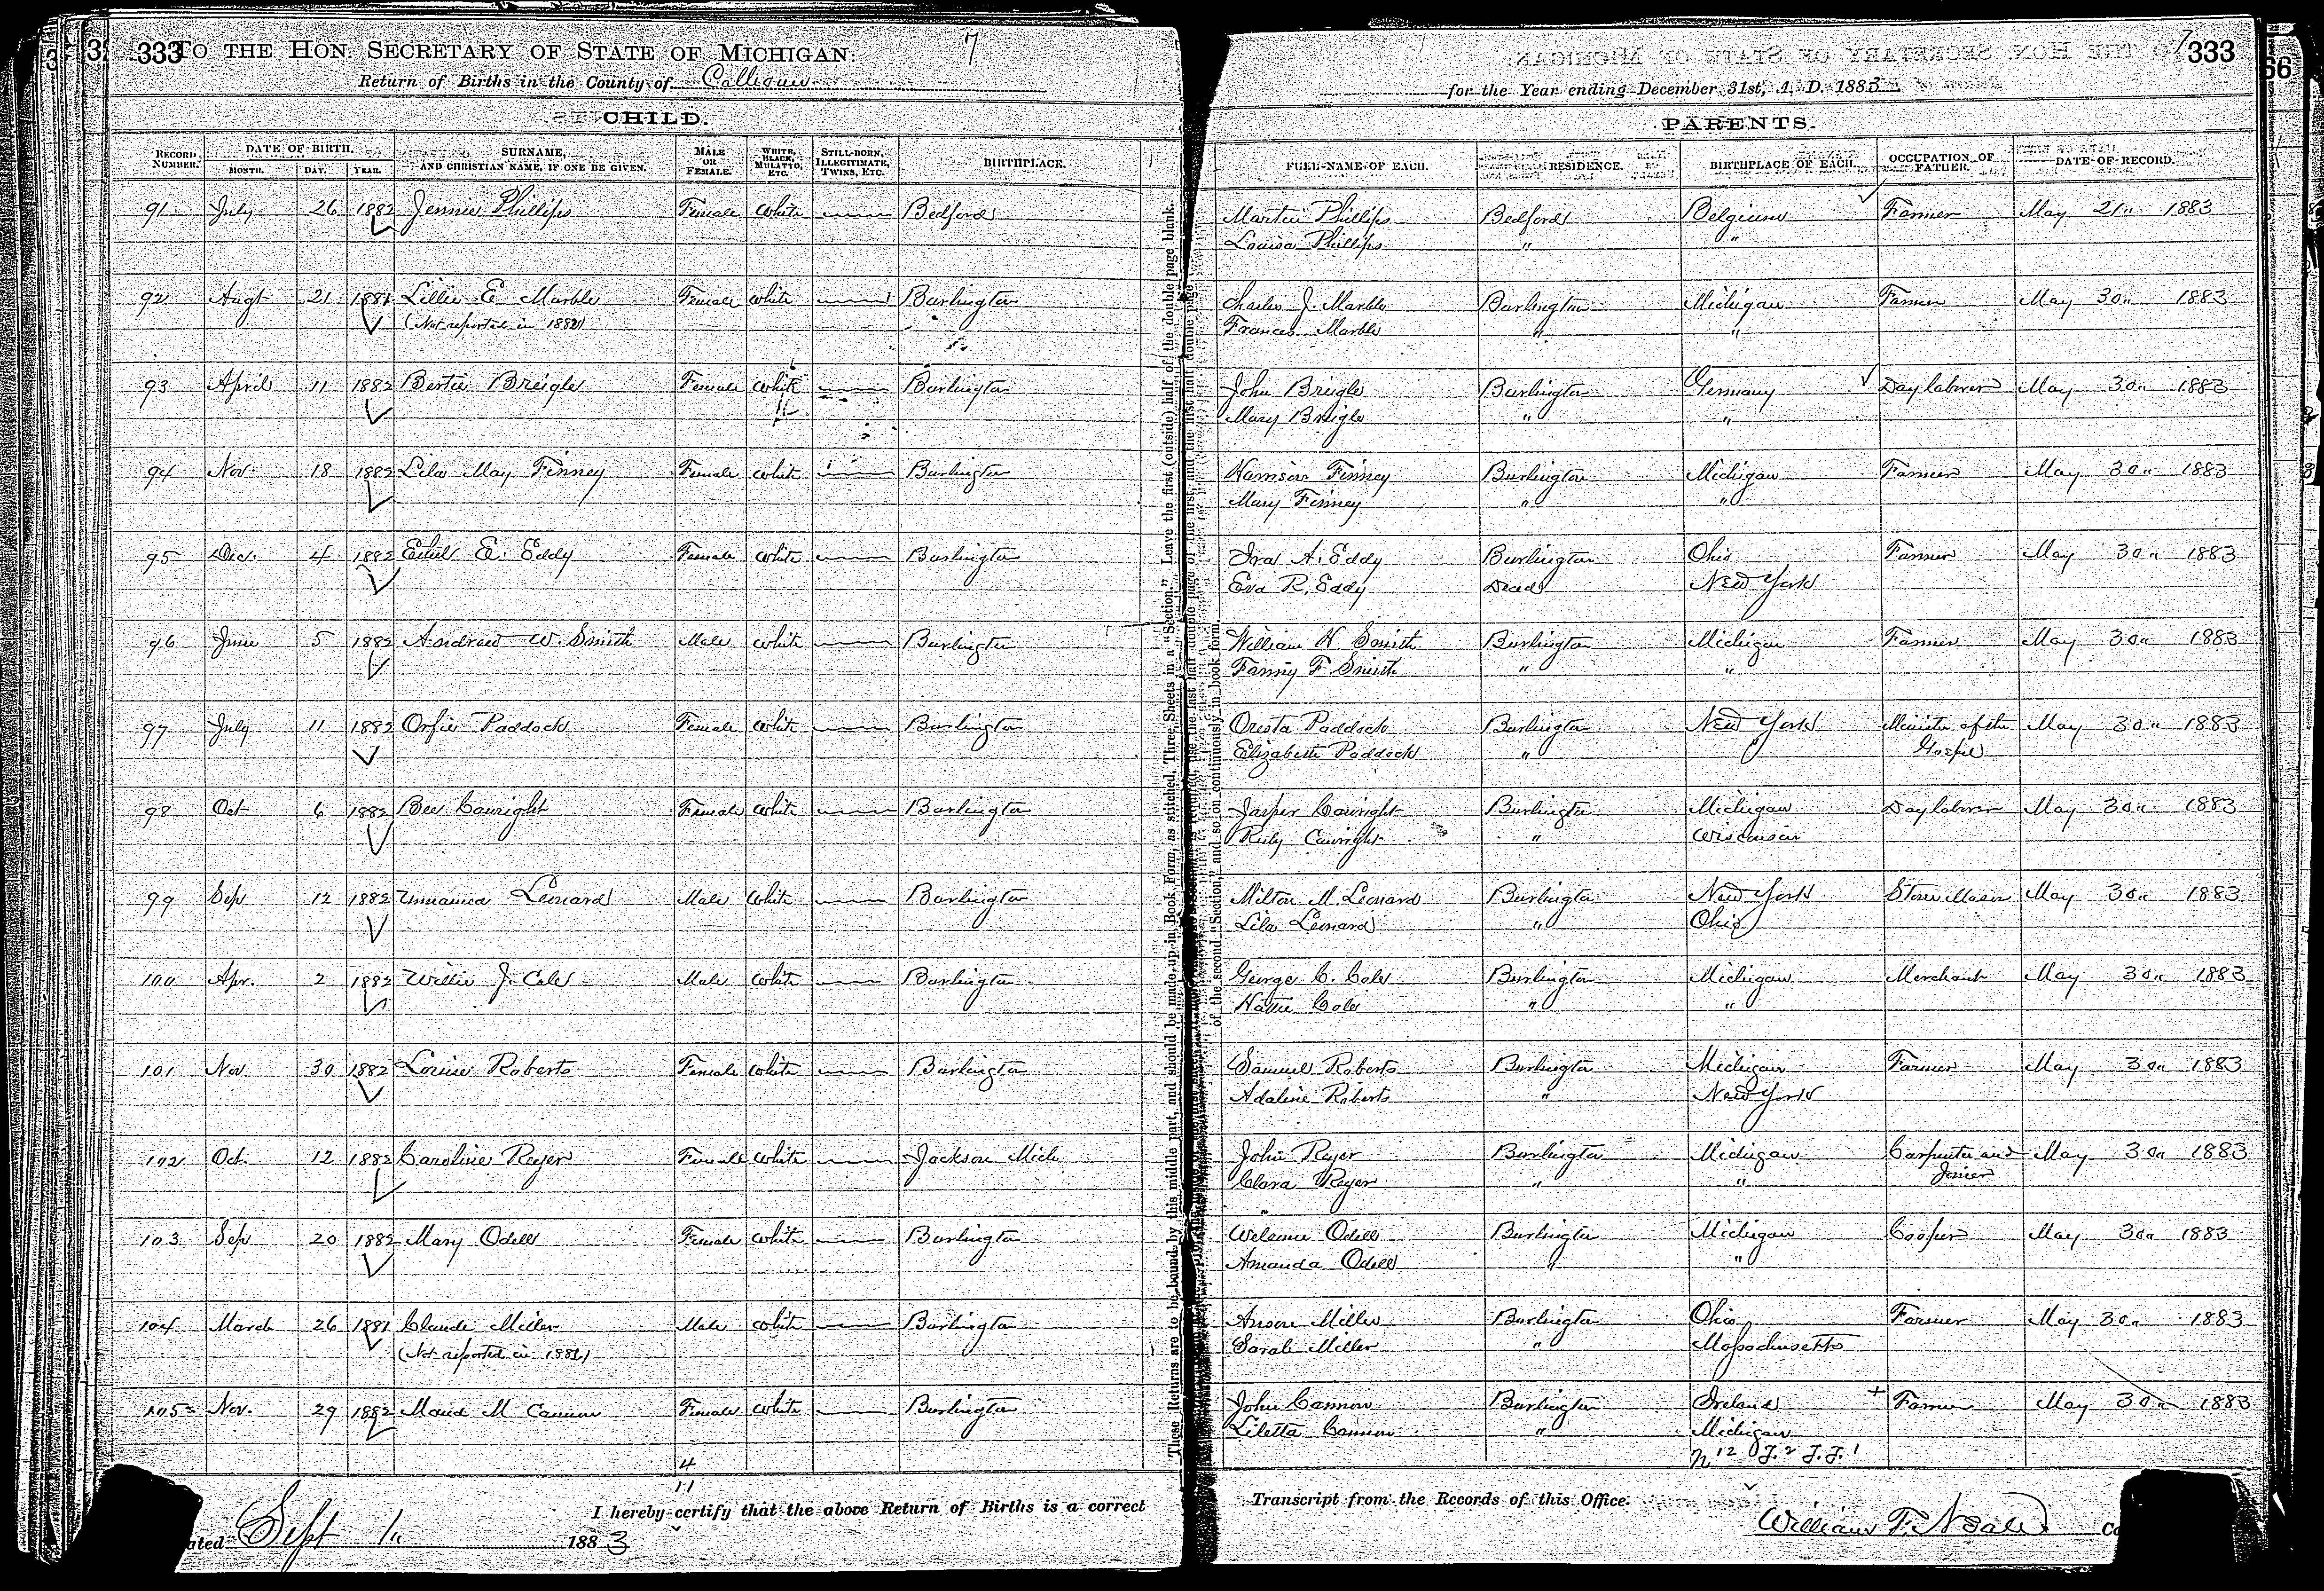 333 TO THE HON. SECRETARY OF STATE OF MICHIGAN: 7
Return of Births in the County of Calhoun
for the Year ending December 31st, A. D. 1883
7 333
CHILD.
PARENTS.
RECORD NUMBER. DATE OF BIRTH. MONTH. DAY. YEAR. SURNAME, AND CHRISTIAN NAME, IF ONE BE GIVEN. MALE OR FEMALE. WHITE, BLACK, MULATTO, ETC. STILL-BORN, ILLEGITIMATE, TWINS, ETC. BIRTHPLACE. FULL NAME OF EACH. RESIDENCE. BIRTHPLACE OF EACH. OCCUPATION OF FATHER. DATE OF RECORD.
91 July 26 1882 Jennie Phillips Female White Bedford Martin Phillips Bedford Belgium Farmer May 21" 1883
Louisa Phillips " "
92 Augt 21 1881 Lillie E Marble Female White Burlington Charles J. Marble Burlington Michigan Farmer May 30" 1883
(Not reported in 1881) Frances Marble " "
93 April 11 1882 Bertie Breigle Female White Burlington John Breigle Burlington Germany Day laborer May 30" 1883
Mary Breigle " "
94 Nov. 18 1882 Lila May Finney Female White Burlington Harrison Finney Burlington Michigan Farmer May 30" 1883
Mary Finney " "
95 Dec. 4 1882 Ethel E. Eddy Female White Burlington Ira A. Eddy Burlington Ohio Farmer May 30" 1883
Eva R. Eddy Dead New York
96 June 5 1882 Andrew W. Smith Male White Burlington William H. Smith Burlington Michigan Farmer May 30" 1883
Fanny F. Smith " "
97 July 11 1882 Orfie Paddock Female White Burlington Oresta Paddock Burlington New York Minister of the May 30" 1883
Elizabeth Paddock " " Gospel
98 Oct 6 1882 Bee Cawright Female White Burlington Jasper Cawright Burlington Michigan Day laborer May 30" 1883
Ruby Cawright " Wisconsin
99 Sep 12 1882 Unnamed Leonard Male White Burlington Milton M. Leonard Burlington New York Stone Mason May 30" 1883
Lila Leonard " Ohio
100 Apr. 2 1882 Willie J. Cole Male White Burlington George C. Cole Burlington Michigan Merchant May 30" 1883
Hattie Cole " "
101 Nov 30 1882 Louise Roberts Female White Burlington Samuel Roberts Burlington Michigan Farmer May 30" 1883
Adaline Roberts " New York
102 Oct. 12 1882 Caroline Reyer Female White Jackson Mich John Reyer Burlington Michigan Carpenter and May 30" 1883
Clara Reyer " " Joiner
103 Sep 20 1882 Mary Odell Female White Burlington Welcome Odell Burlington Michigan Cooper May 30" 1883
Amanda Odell " "
104 March 26 1881 Claude Miller Male White Burlington Anson Miller Burlington Ohio Farmer May 30" 1883
(Not reported in 1881) Sarah Miller " Massachusetts
105 Nov. 29 1882 Maud M Cannon Female White Burlington John Cannon Burlington Ireland + Farmer May 30" 1883
Liletta Cannon " Michigan
4 n 12 J. 2 J. J. 1
11
I hereby certify that the above Return of Births is a correct Transcript from the Records of this Office.
ated Sept 1" 1883
William F. Neale Co